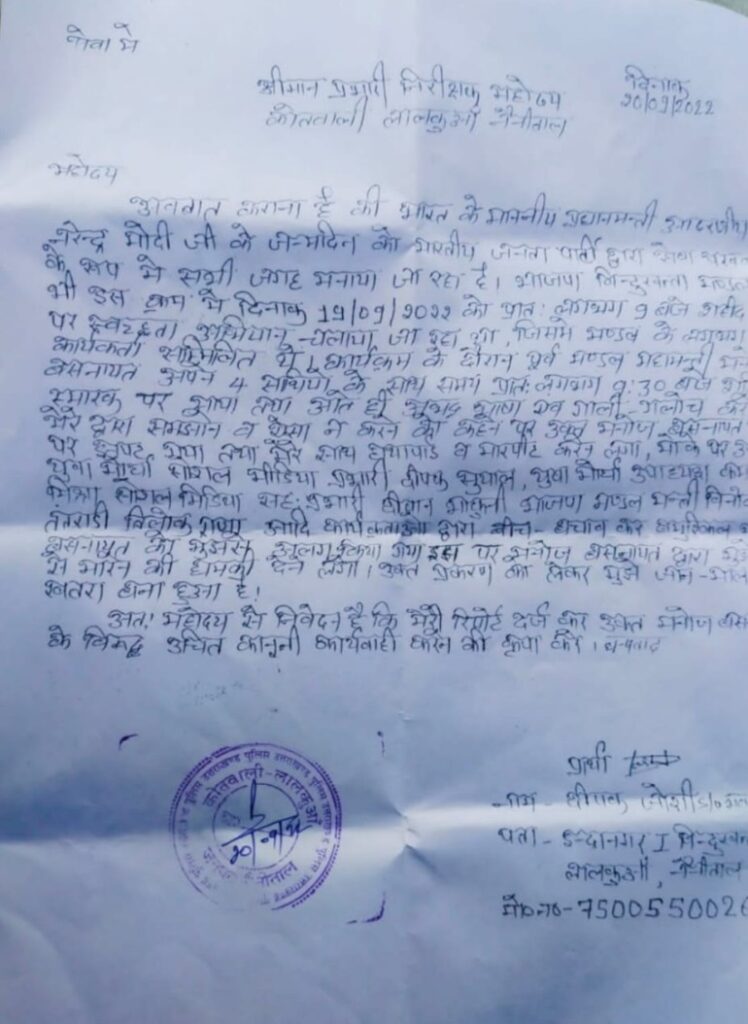 सेवा में
श्रीमान प्रभारी निरीक्षक महोदय
दिनाक
20/09/2022
कोतवाली लालकुआँ नैनीताल
महोदय
अवगत कराना है की भारत के माननीय प्रधानमन्त्री आदरणीय
नरेन्द्र मोदी जी के जन्मदिन को भारतीय जनता पार्टी द्वारा सेवा
के रूप मे सभी जगह मनाया जा रहा है। भाजपा बिन्दुखत्ता मण्डल
भी इस क्रम मे दिनाक 19/09/2022 को प्रातः लगभग 9 बजे शहीद
पर स्वच्छता अभियान चलाया जा रहा था, जिसमे मण्डल के लगभग
कार्यकर्ता सम्मिलित थे। कार्यक्रम के दौरान पूर्व मण्डल महामन्त्री
बसनायत अपने 4 साथियो के साथ समय प्रातः लगभग 9:30 बजे
स्मारक पर आया तथा आते ही अभद्र भाषा एव गाली-गलोच
मेरे द्वारा समझाने व ऐसा न करने को कहने पर उक्त मनोज बसनायत
पर झपट गया तथा मेरे साथ हाथापाई व मारपीट करने लगा, मौके पर
युवा मोर्चा सोशल मीडिया प्रभारी दीपक सुयाल, युवा मोर्चा उपाध्यक्ष
मिश्रा, सोशल मिडिया सह-प्रभारी भाजपा मण्डल मन्त्री
आदि कार्यकर्ताओ द्वारा बीच-बचाव कर बामुश्किल
बसनायत को मुझसे अलग किया गया इस पर मनोज बसनायत द्वारा
से मारने की धमकी देने लगा। उक्त प्रकरण को लेकर मुझे जान-माल
खतरा बना हुआ है।
अतः महोदय से निवेदन है कि मेरी रिपोर्ट दर्ज कर उक्त मनोज
के विरूद्ध उचित कानूनी कार्यवाही करने की कृपा करे। धन्यवाद
प्रार्थी
नाम - दीपक जोशी S/o
पता - इन्दानगर I बिन्दुखत्ता
लालकुआँ, नैनीताल
मो०न०-7500550026
उत्तराखण्ड पुलिस
कोतवाली-लालकुआँ
20-9-22
जनपद नैनीताल